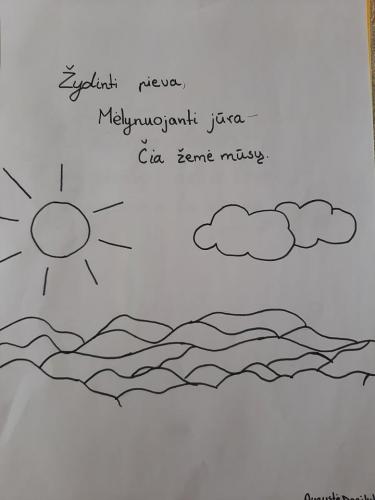 Žydinti pieva,
Mėlynuojanti jūra –
Čia žemė mūsų.